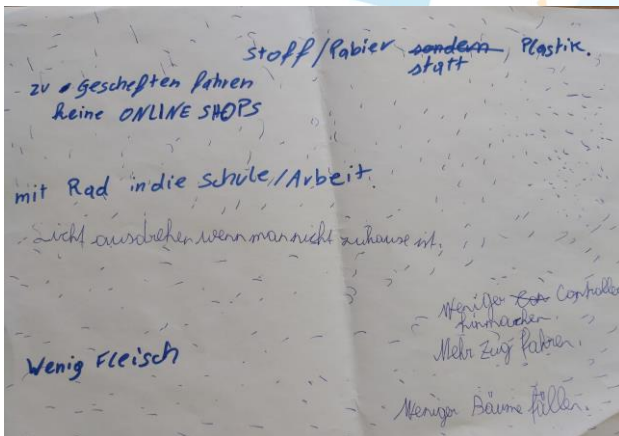 Stoff/Pabier sondern Plastik.
statt
- zu Gescheften fahren
keine ONLINE SHOPS
mit Rad in die Schule/Arbeit.
Licht ausdrehen wenn man nicht zuhause ist.
Weniger Controller
hinmachen.
Mehr Zug fahren.
Wenig Fleisch
Weniger Bäume fällen.